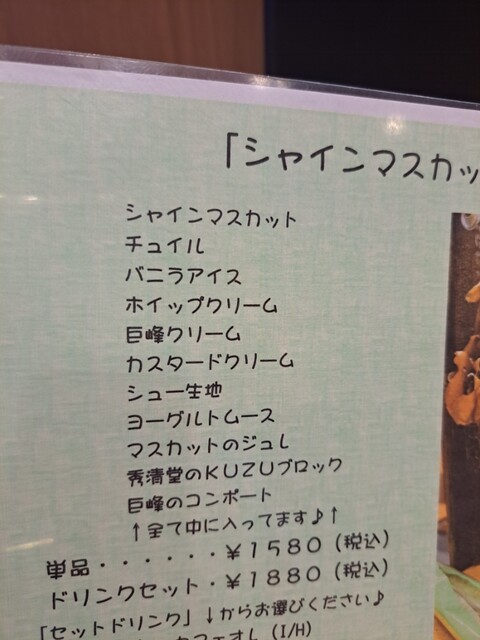 「シャインマスカッ
シャインマスカット
チュイル
バニラアイス
ホイップクリーム
巨峰クリーム
カスタードクリーム
シュー生地
ヨーグルトムース
マスカットのジュレ
秀清堂のKUZUブロック
巨峰のコンポート
↑全て中に入ってます♪↑
単品・・・・・・¥1580(税込)
ドリンクセット・¥1880(税込)
「セットドリンク」↓からお選びください♪
カフェオレ(I/H)